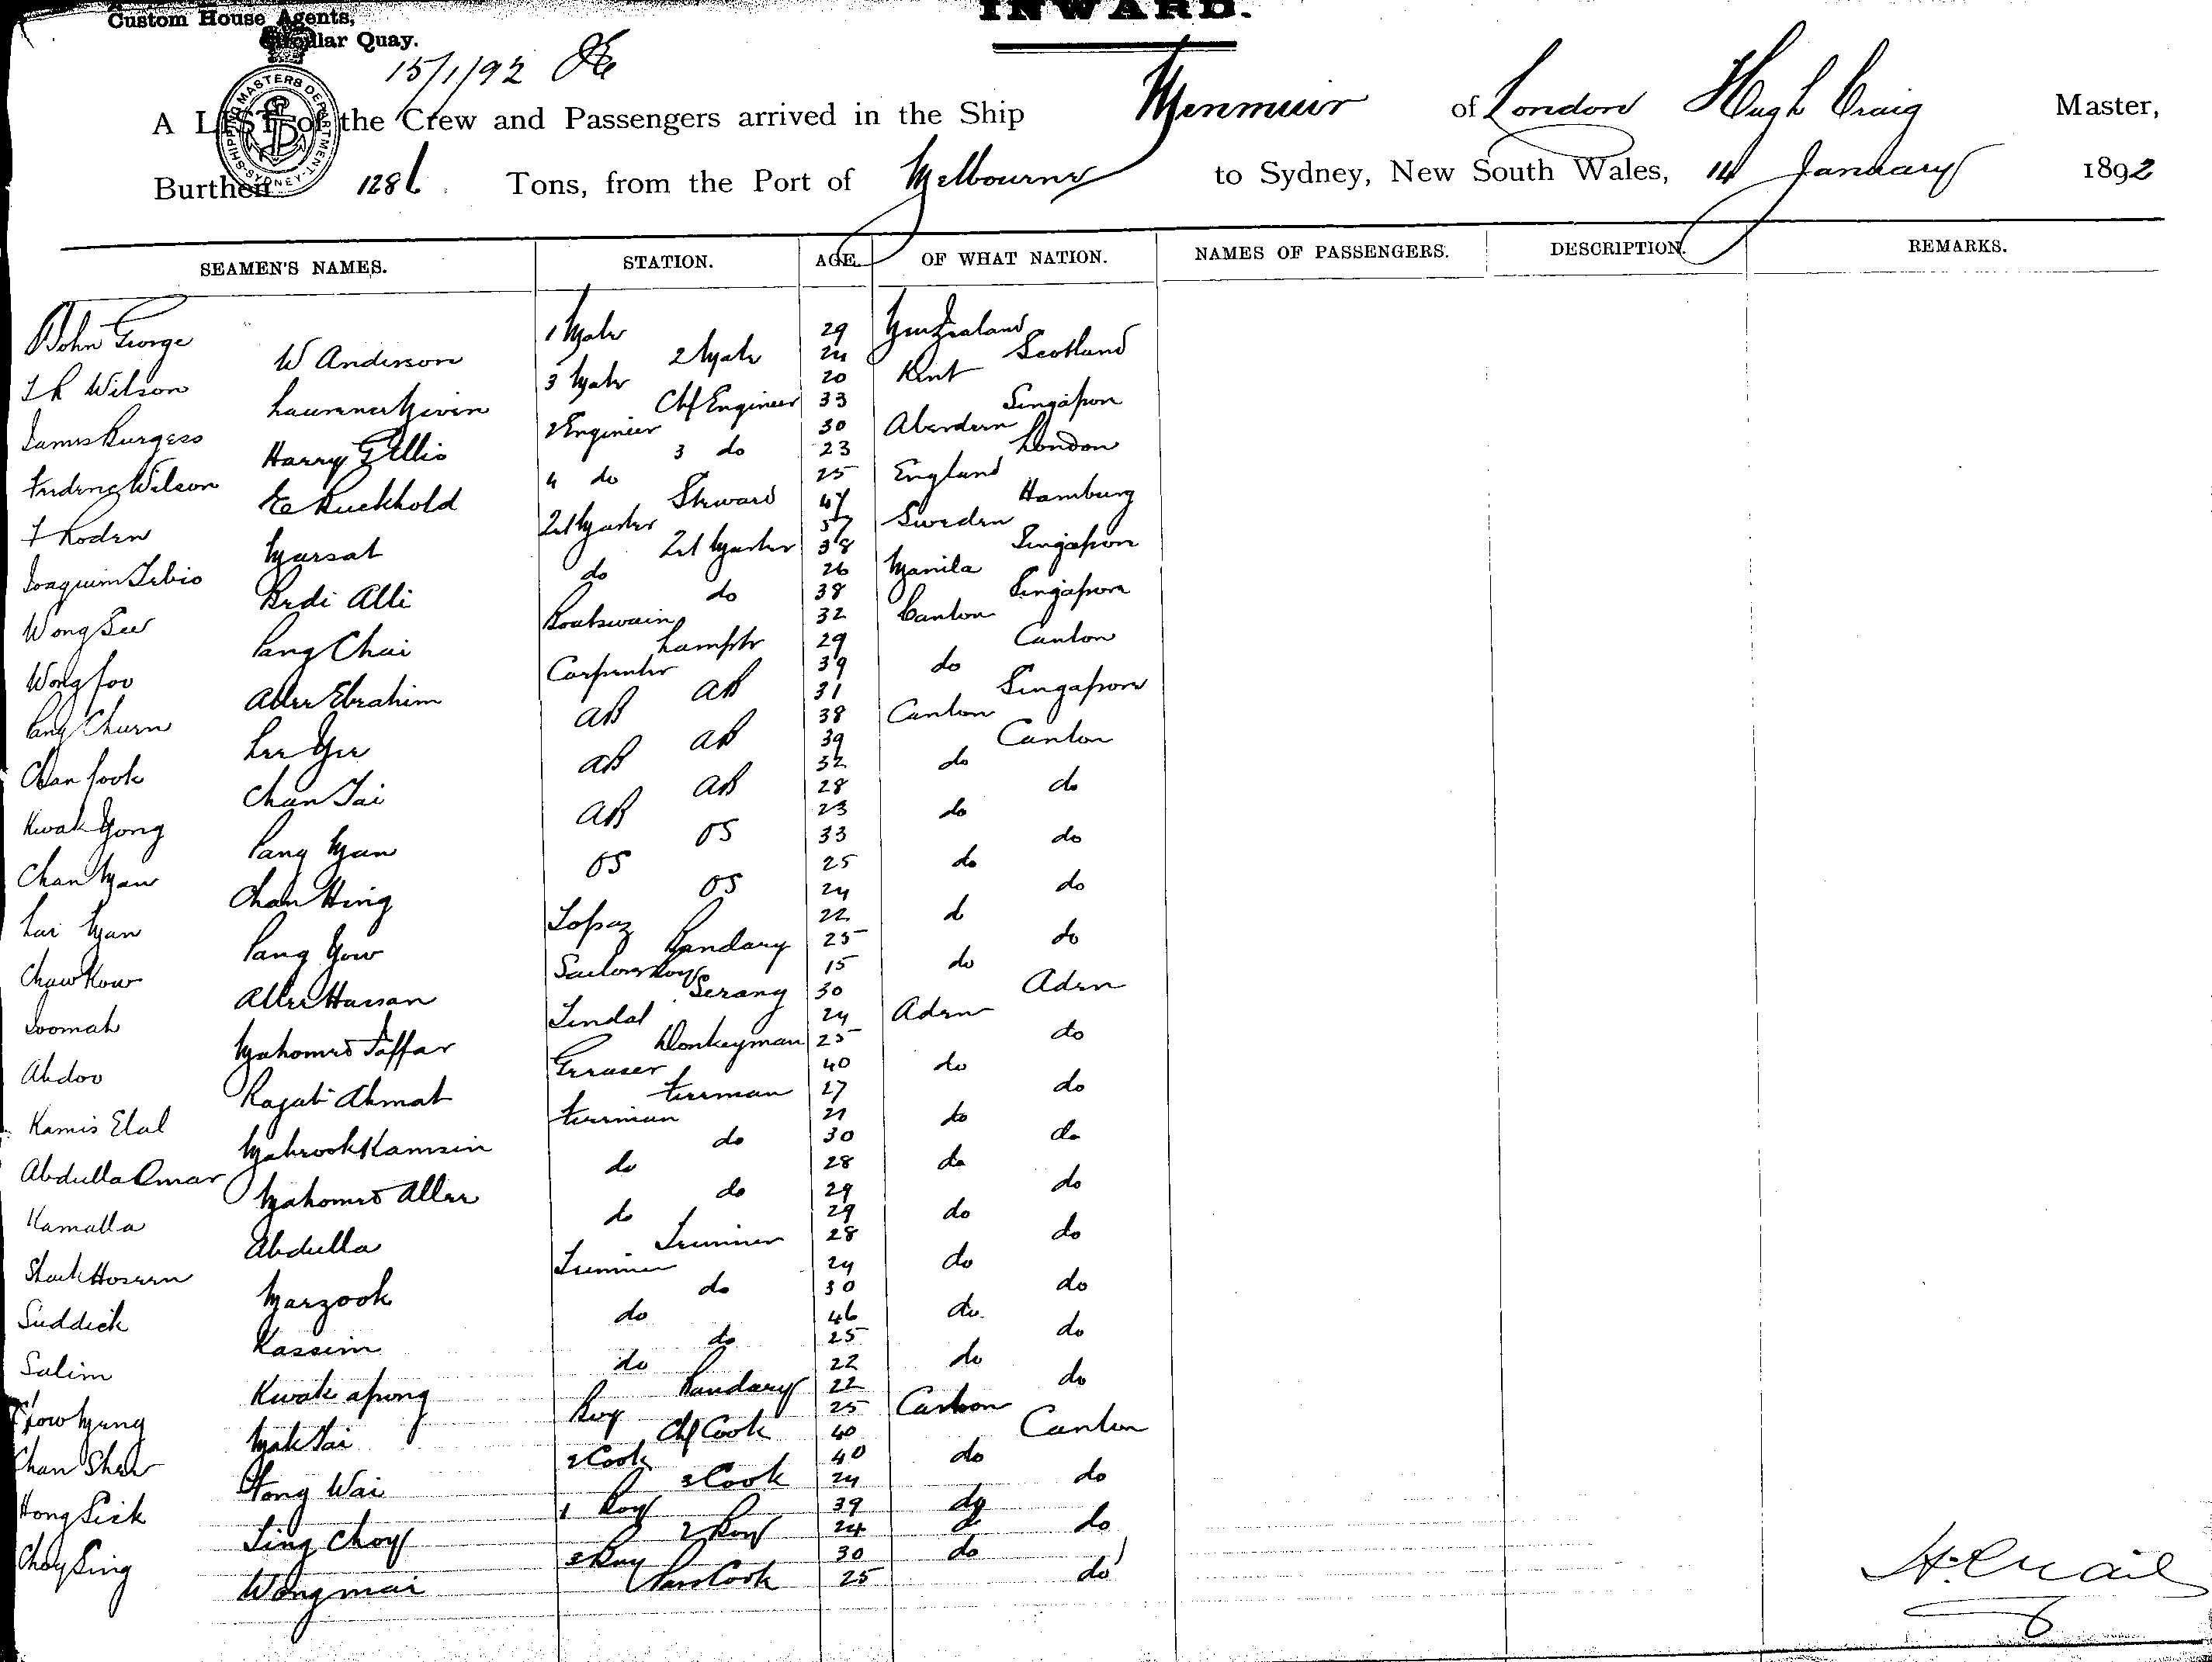 Custom House Agents,
Circular Quay.
INWARD.
15/1/92
SHIPPING MASTERS DEPARTMENT SYDNEY
A LIST of the Crew and Passengers arrived in the Ship Menmuir of London Hugh Craig Master,
Burthen 1286 Tons, from the Port of Melbourne to Sydney, New South Wales, 14 January 1892
SEAMEN'S NAMES. STATION. AGE. OF WHAT NATION. NAMES OF PASSENGERS. DESCRIPTION. REMARKS.
John George 1 Mate 29 New Zealand
W Anderson 2 Mate 24 Scotland
Wilson 3 Mate 20 Kent
Laurence Given Chf Engineer 33 Singapore
James Burgess 2 Engineer 30 Aberdeen
Harry Gillis 3 do 23 London
Frederic Wilson 4 do 25 England
E Buckhold Steward 47 Hamburg
F Roden 57 Sweden
Marsat 38 Singapore
Joaquim do 26 Manila
Bedi Alli do 38 Singapore
Wong See Boatswain 32 Canton
Pang Chai Lamptr 29 Canton
Wong foo Carpenter 39 do
Allee Ebrahim AB 31 Singapore
Pang Churn AB 38 Canton
Lee Yee AB 39 Canton
Chan fook AB 32 do
Chan Tai AB 28 do
Kwak Yong AB 23 do
Pang Man OS 33 do
Chan Maw OS 25 do
Chan Hing OS 24 do
Lai Man Topaz 22 d
Pang Yow Bandary 25 do
Chaw Kow Sailors Boy 15 do
Allee Hassan Serang 30 Aden
Joomah Tindal 24 Aden
Mahomed Jaffar Donkeyman 25 do
Abdoo Greaser 40 do
Rajab Ahmat Fireman 27 do
Kamis Elal Fireman 21 do
Mabrook Kamsin do 30 do
Abdulla Omar do 28 do
Mahomed Allee do 29 do
Kamalla do 29 do
Abdulla Trimmer 28 do
Shaik Hoseen Trimmer 24 do
Marzook do 30 do
Suddick do 46 do
Kassim do 25 do
Salim do 22 do
Kwak apong Bandary 22 do
Chow Mung Boy 25 Canton
Mak Tai Chf Cook 40 Canton
Chan Shew 2 Cook 40 do
Tong Wai 3 Cook 24 do
Hong Sick 1 Boy 39 do
Sing Choy 2 Boy 24 do
Choy Sing 3 Boy 30 do
Wong mai Pass Cook 25 do